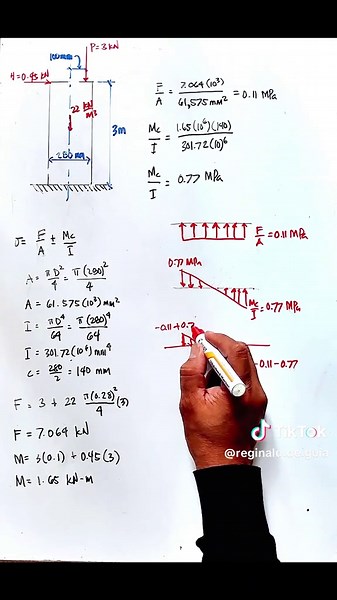 P=3 kN
100mm
H=0.45 kN
22 kN/m³
3m
280mm
F/A = 7.064(10³)/61,575 mm² = 0.11 MPa
Mc/I = 1.65(10⁶)(140)/301.72(10)⁶
Mc/I = 0.77 MPa
σ = F/A ± Mc/I
A = πD²/4 = π(280)²/4
A = 61.575(10³) mm²
I = πD⁴/64 = π(280)⁴/64
I = 301.72(10⁶) mm⁴
c = 280/2 = 140 mm
F = 3 + 22 π(0.28)²/4 (3)
F = 7.064 kN
M = 3(0.1) + 0.45(3)
M = 1.65 kN-m
F/A = 0.11 MPa
0.77 MPa
Mc/I = 0.77 MPa
-0.11+0.7
-0.11-0.77
TikTok